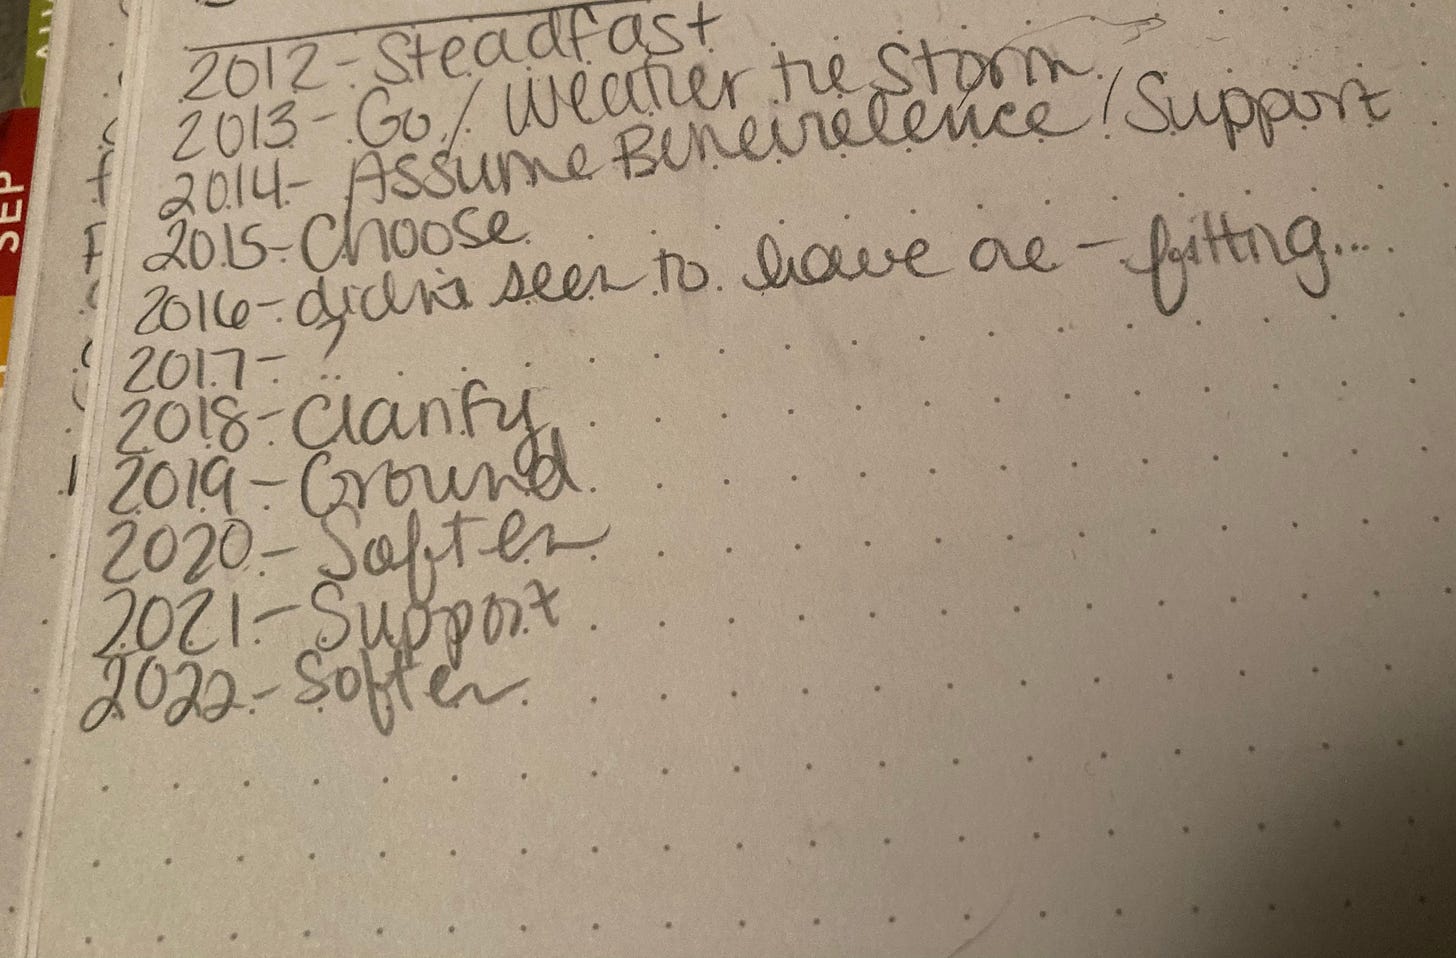 2012- Steadfast
2013- Go / Weather the Storm
2014- Assume Benevelence / Support
2015- Choose
2016- didn't seem to have one - fitting...
2017- ?
2018- Clarify
2019- Ground
2020- Soften
2021- Support
2022- Soften
SEP